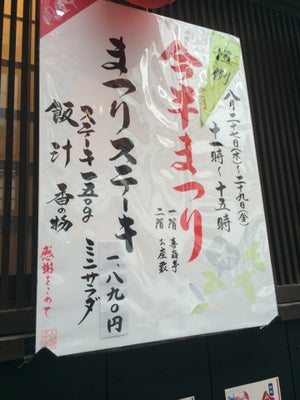 恒例
八月二十七日(水)〜二十九日(金)
十一時〜十五時
今半まつり
一階 喜扇亭
二階 お座敷
まつりステーキ 一、八九〇円
ステーキ一五〇g ミニサラダ
飯 汁 香の物
感謝をこめて